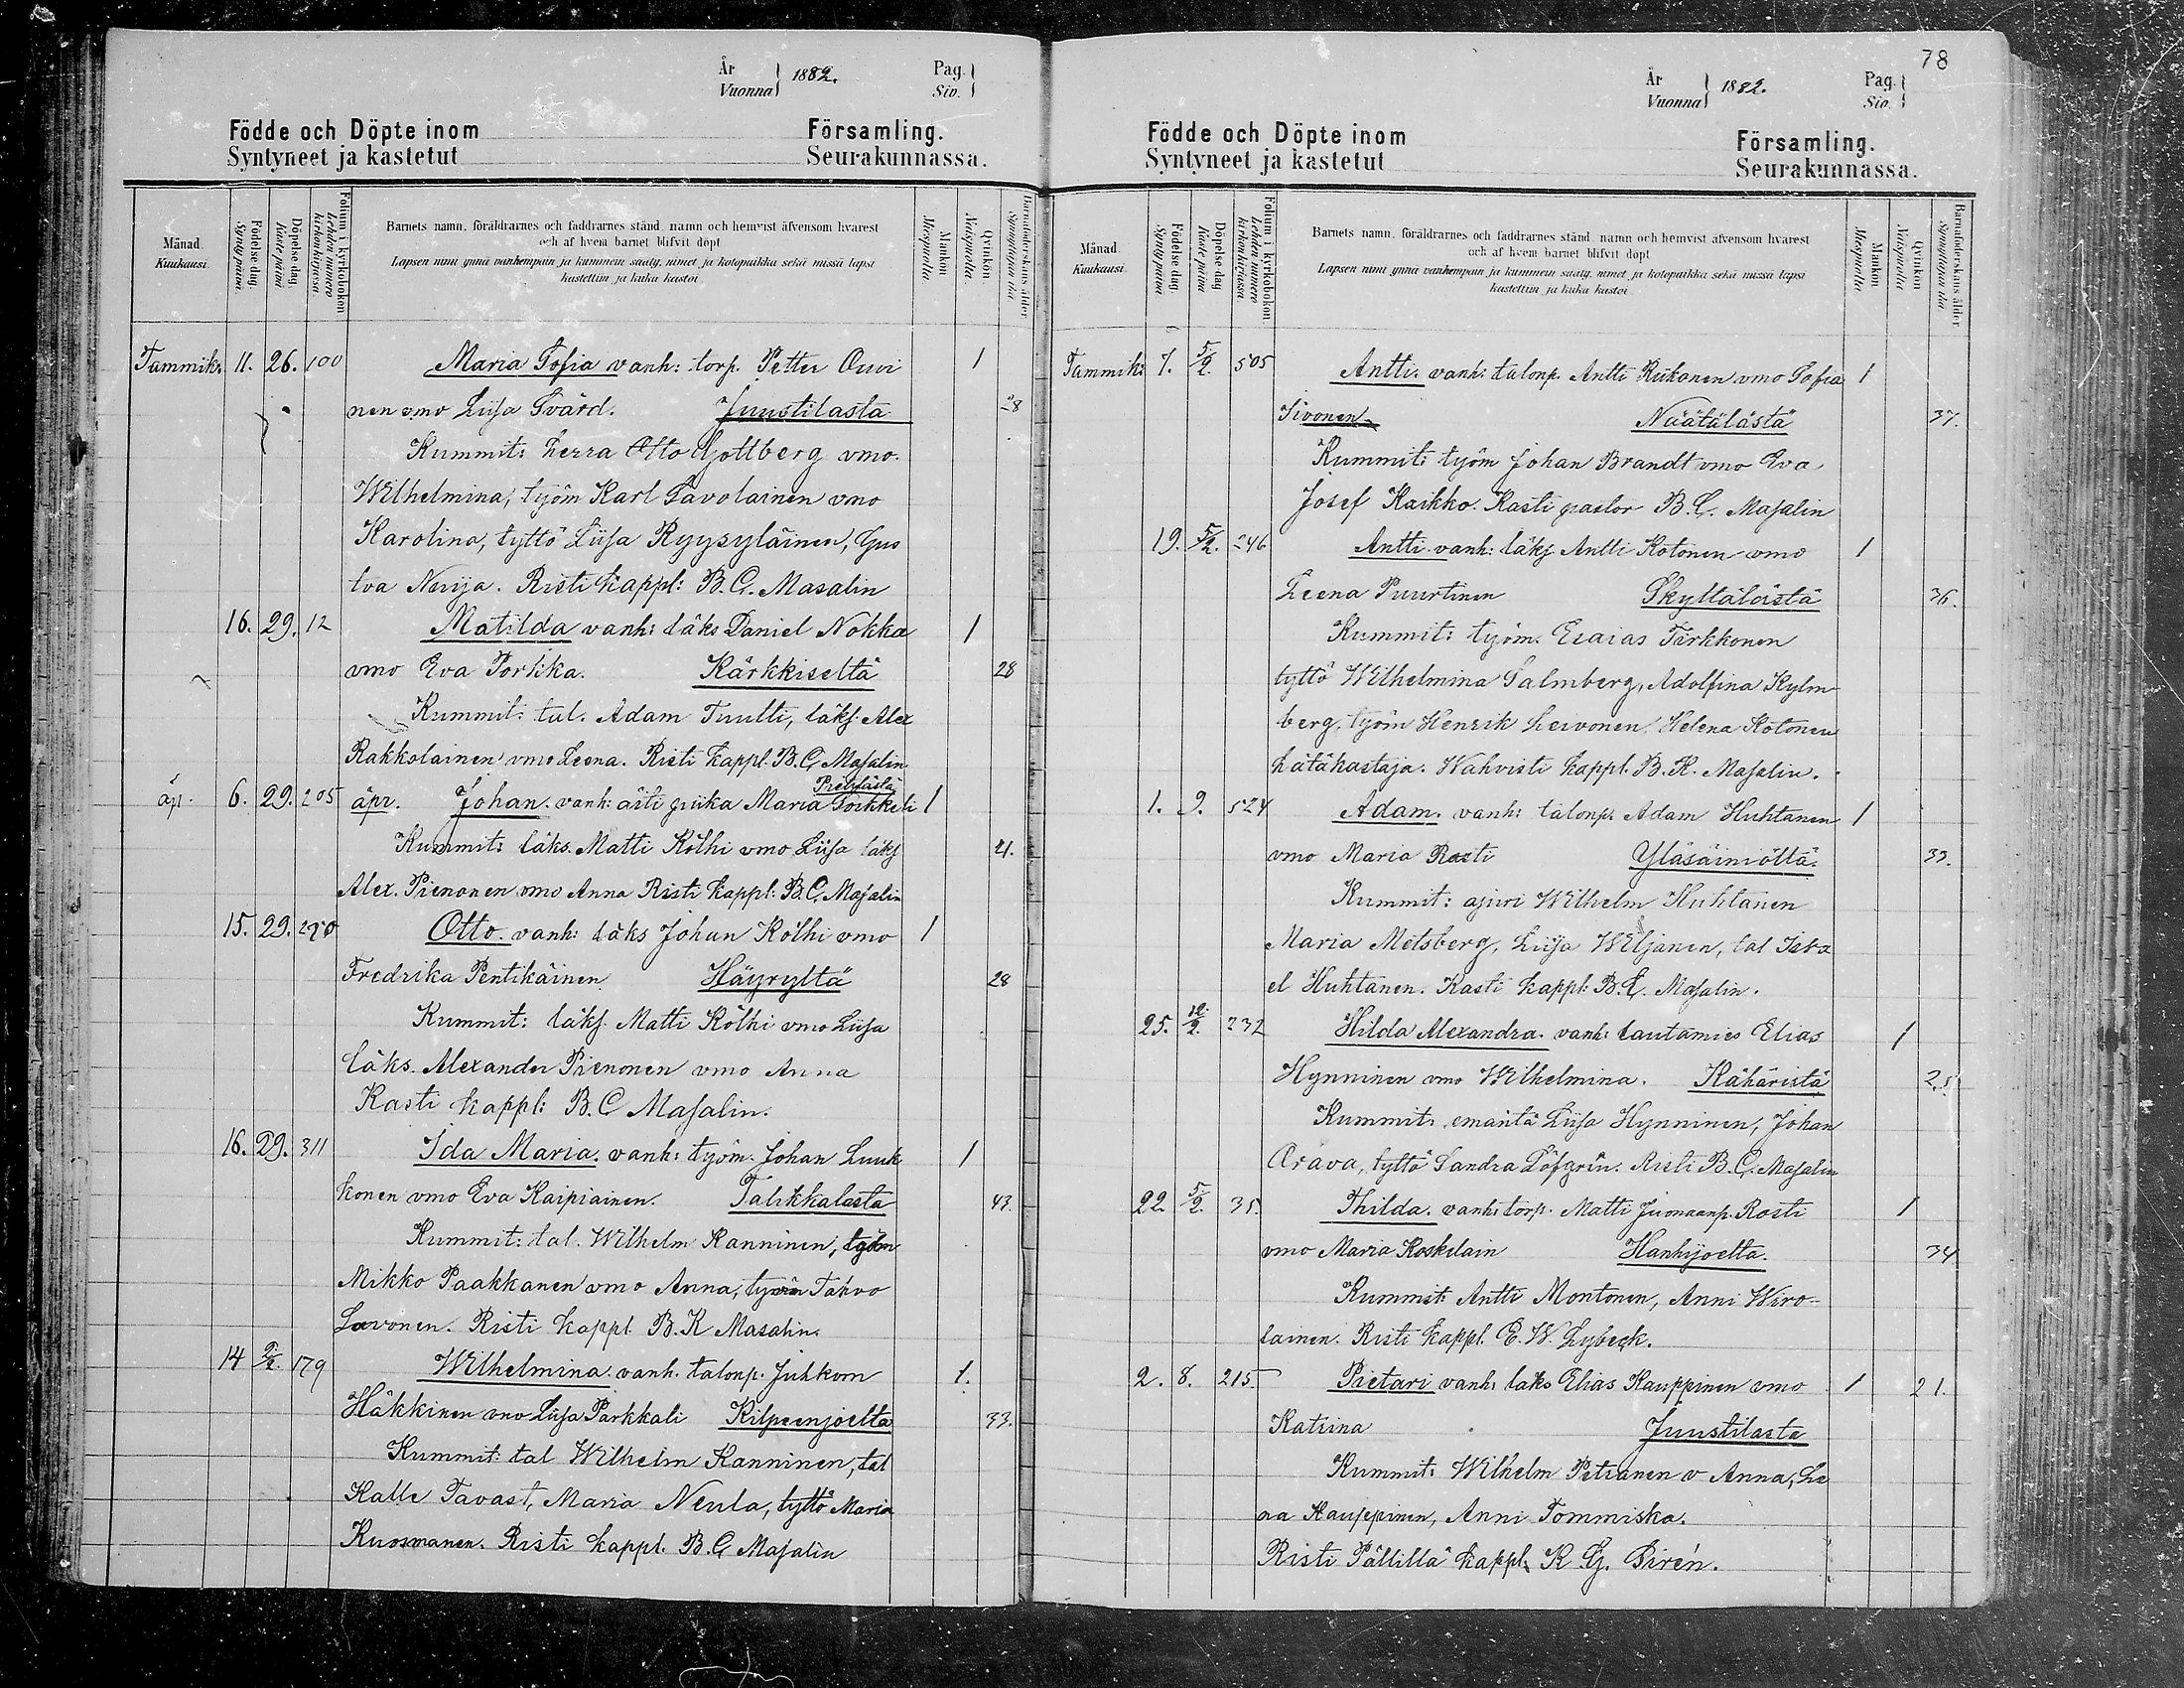 År
Vuonna
1882.
Pag.
Siv.
Födde och Döpte inom
Församling.
Syntyneet ja kastetut
Seurakunnassa.
Månad.
Kuukausi.
Födelse dag.
Synty päivä.
Döpelse dag.
Kaste päivä
Folium i kyrkobokon
Lehden numero kirkonkirjassa.
Barnets namn, föräldrarnes och faddrarnes stånd, namn och hemvist äfvensom hvarest
och af hvem barnet blifvit döpt
Lapsen nimi ynnä vanhempain ja kummein sääty, nimet ja kotopaikka sekä missä lapsi
kastettiin ja kuka kastoi.
Mankön
Miespuolta.
Qvinkön.
Naispuolta.
Barnaföderskans ålder
Synnyttäjän ikä
Tammik. 11. 26. 100 Maria Sofia vanh: torp. Petter Ouvi 1
nen vmo Liisa Svärd. Juustilasta 28
Kummit: herra Otto Gottberg vmo
Wilhelmina, työm Karl Savolainen vmo
Karolina, tyttö Liisa Ryysyläinen, Gus
tva Risti kappl: B. C. Masalin
16. 29. 12 Matilda vanh: läks Daniel Nokka 1
vmo Eva Porkka. Kärkkiseltä 28
Kummit: tal. Adam Tuulti, läks. Alex
Rakkolainen vmo Leena. Risti kappl. B. C. Masalin
äp. 6. 29. 205 äpr. Johan. vanh: äiti piika Maria 1
Kummit: läks. Matti Kölhi vmo Liisa läks 21.
Alex. Pienonen vmo Anna Risti kappl: B. C. Masalin
15. 29. Otto. vanh: läks Johan Kölhi vmo 1
Fredrika Pentikäinen Häyryltä 28
Kummit: läks. Matti Kölhi vmo Liisa
läks. Alexander Pienonen vmo Anna
Kasti kappl: B. C Masalin.
16. 29. 311 Ida Maria. vanh: työm. Johan Luuk 1
konen vmo Eva Kaipiainen. Talikkalasta 43.
Kummit: tal. Wilhelm Kanninen, työm
Mikko Paakkanen vmo Anna, työm Tahvo
Lavonen. Risti kappl. B. K Masalin.
14 2/2. 179 Wilhelmina. vanh. talonp. Juhkom 1.
Häkkinen vmo Liisa Parkkali Kilpeenjoelta 33.
Kummit: tal Wilhelm Kanninen, tal
Kalle Tavast, Maria Neula, tyttö Maria
Kuosmanen. Risti kappl. B. C. Masalin
78
År
Vuonna
1882.
Pag.
Siv.
Födde och Döpte inom
Församling.
Syntyneet ja kastetut
Seurakunnassa.
Månad.
Kuukausi.
Födelse dag.
Synty päivä
Döpelse dag
Kaste päivä
Folium i kyrkobokon
Lehden numero kirkonkirjassa.
Barnets namn, föräldrarnes och faddrarnes stånd, namn och hemvist äfvensom hvarest
och af hvem barnet blifvit döpt
Lapsen nimi ynnä vanhempain ja kummein sääty, nimet ja kotopaikka sekä missä lapsi
kastettiin ja kuka kastoi.
Mankön
Miespuolta
Qvinkön
Naispuolta
Barnaföderskans ålder
Synnyttäjän ikä
Tammik: 7. 5/2. 505 Antti. vanh: talonp. Antti Riikonen vmo Sofia 1
Sivonen Näätälästä 37.
Kummit: työm Johan Brandt vmo Eva
Josef Kaikko. Kasti pastor B. C. Masalin
19. 5/2. 246 Antti. vanh: läks Antti Kotonen vmo 1
Leena Puurtinen Skyttälästä 36.
Kummit: työm. Esaias Tirkkonen
tyttö Wilhelmina Salmberg, Adolfina Kylm
berg, työm Henrik Leivonen, Helena Kotonen
hätäkastaja. Wahvisti kappl. B. K. Masalin.
1. 9. 524 Adam. vanh: talonp. Adam Huhtanen 1
vmo Maria Rasti Yläsäiniöltä. 33.
Kummit: ajuri Wilhelm Huhtanen
Maria Metsberg, Liisa Wiljanen, tal Isra
el Huhtanen. Kasti kappl: B. C. Masalin.
25. 12/2. 232 Hilda Alexandra. vanh: lautamies Elias 1
Hynninen vmo Wilhelmina. Kähäristä 25.
Kummit: emäntä Liisa Hynninen, Johan
Orava, tyttö Sandra Löfgrén. Risti B. C. Masalin
22. 5/2. 35. Thilda. vanh: torp. Matti Juonaanp. Rosti 1
vmo Maria Koskelain Hanhijoelta. 34
Kummit: Antti Montonen, Anni Wiro-
lainen. Risti kappl. E. W. Lybeck.
2. 8. 215. Pietari vanh: läks Elias Kauppinen vmo 1 21.
Katrina Juustilasta
Kummit: Wilhelm Petranen v Anna, Le
na Kauppinen, Anni Tommiska.
Risti Pällillä kappl. K G. Sirén.